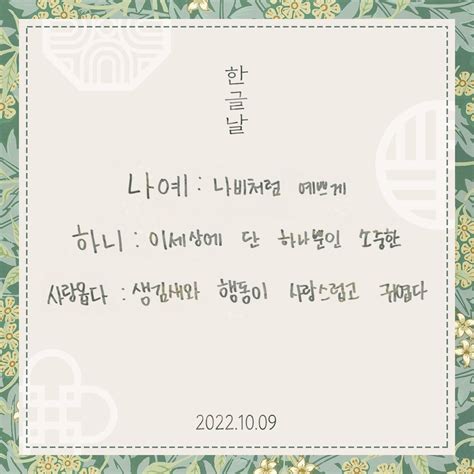 한글날
나예 : 나비처럼 예쁘게
하니 : 이세상에 단 하나뿐인 소중한
사랑옵다 : 생김새와 행동이 사랑스럽고 귀엽다
2022.10.09